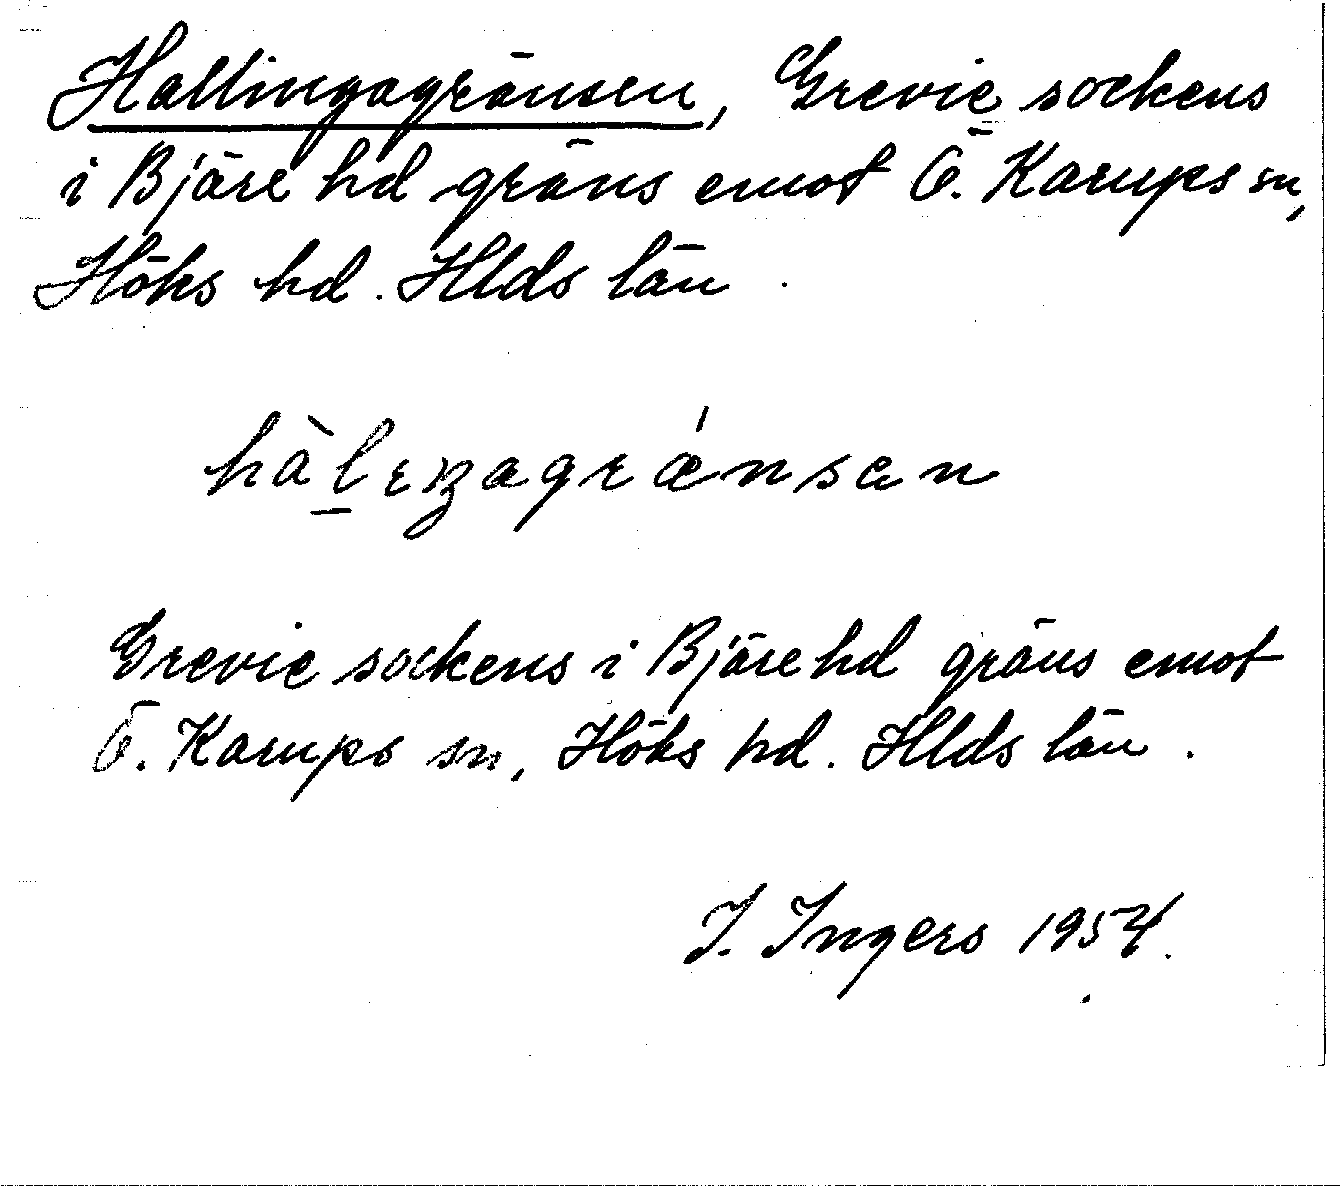 Hallingagränsen, Grevie sockens
i Bjäre hd gräns emot Ö. Karups sn,
Höks hd. Hlds län.
hàlıŋagrǽnsən
Grevie sockens i Bjäre hd gräns emot
Ö. Karups sn, Höks hd. Hlds län.
I. Ingers 1954.